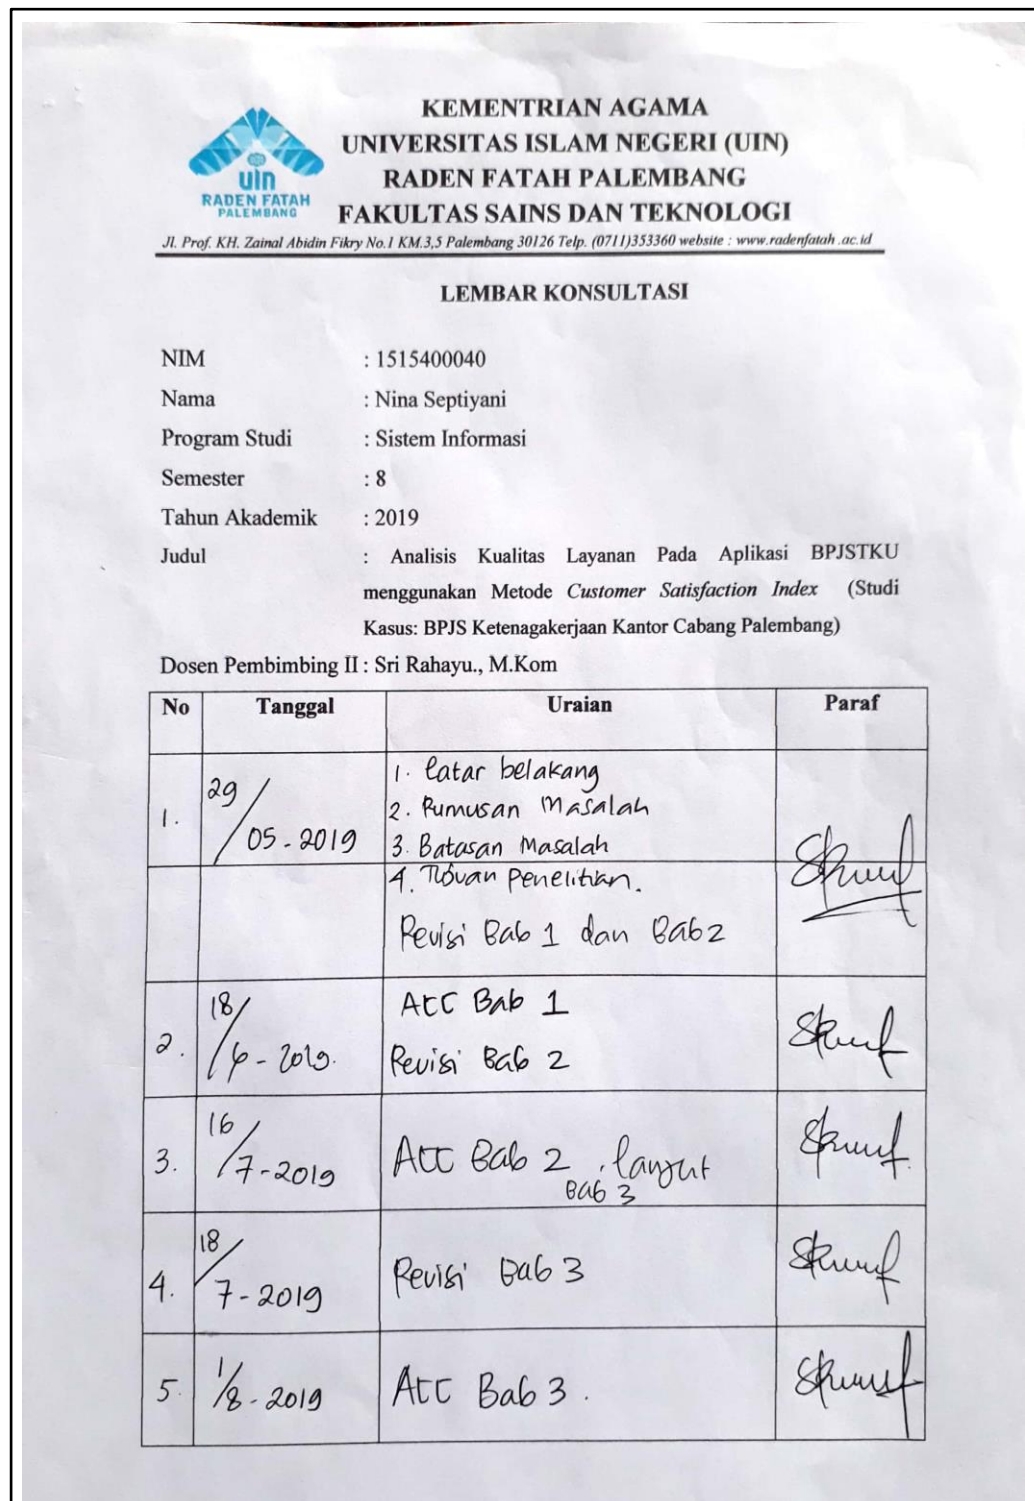 KEMENTRIAN AGAMA
UNIVERSITAS ISLAM NEGERI (UIN)
RADEN FATAH PALEMBANG
FAKULTAS SAINS DAN TEKNOLOGI
uin
RADEN FATAH
PALEMBANG
Jl. Prof. KH. Zainal Abidin Fikry No.1 KM.3,5 Palembang 30126 Telp. (0711)353360 website : www.radenfatah .ac.id
LEMBAR KONSULTASI
NIM : 1515400040
Nama : Nina Septiyani
Program Studi : Sistem Informasi
Semester : 8
Tahun Akademik : 2019
Judul : Analisis Kualitas Layanan Pada Aplikasi BPJSTKU
menggunakan Metode Customer Satisfaction Index (Studi
Kasus: BPJS Ketenagakerjaan Kantor Cabang Palembang)
Dosen Pembimbing II : Sri Rahayu., M.Kom
No Tanggal Uraian Paraf
1. 29/05-2019 1. Latar belakang
2. Rumusan Masalah
3. Batasan Masalah
4. Tujuan Penelitian.
Revisi Bab 1 dan Bab 2
2. 18/6-2019. ACC Bab 1
Revisi Bab 2
3. 16/7-2019 ACC Bab 2, lanjut
Bab 3
4. 18/7-2019 Revisi Bab 3
5. 1/8-2019 ACC Bab 3.